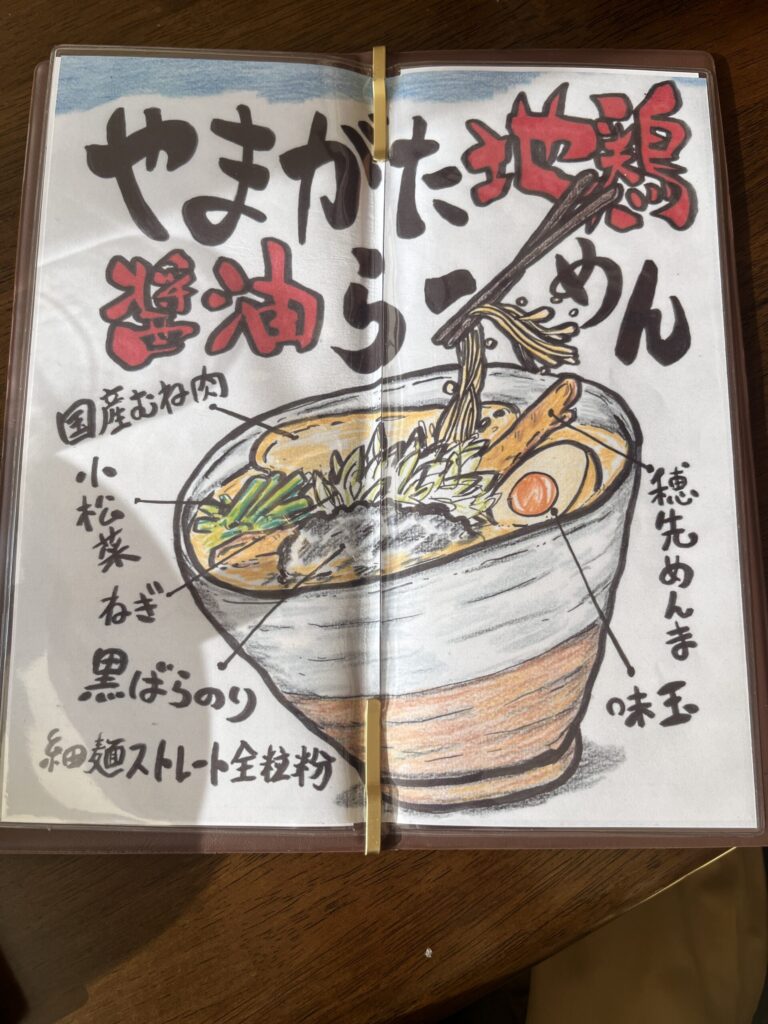 やまがた地鶏
醤油らーめん
国産むね肉
小松菜
ねぎ
黒ばらのり
細麺ストレート全粒粉
穂先めんま
味玉